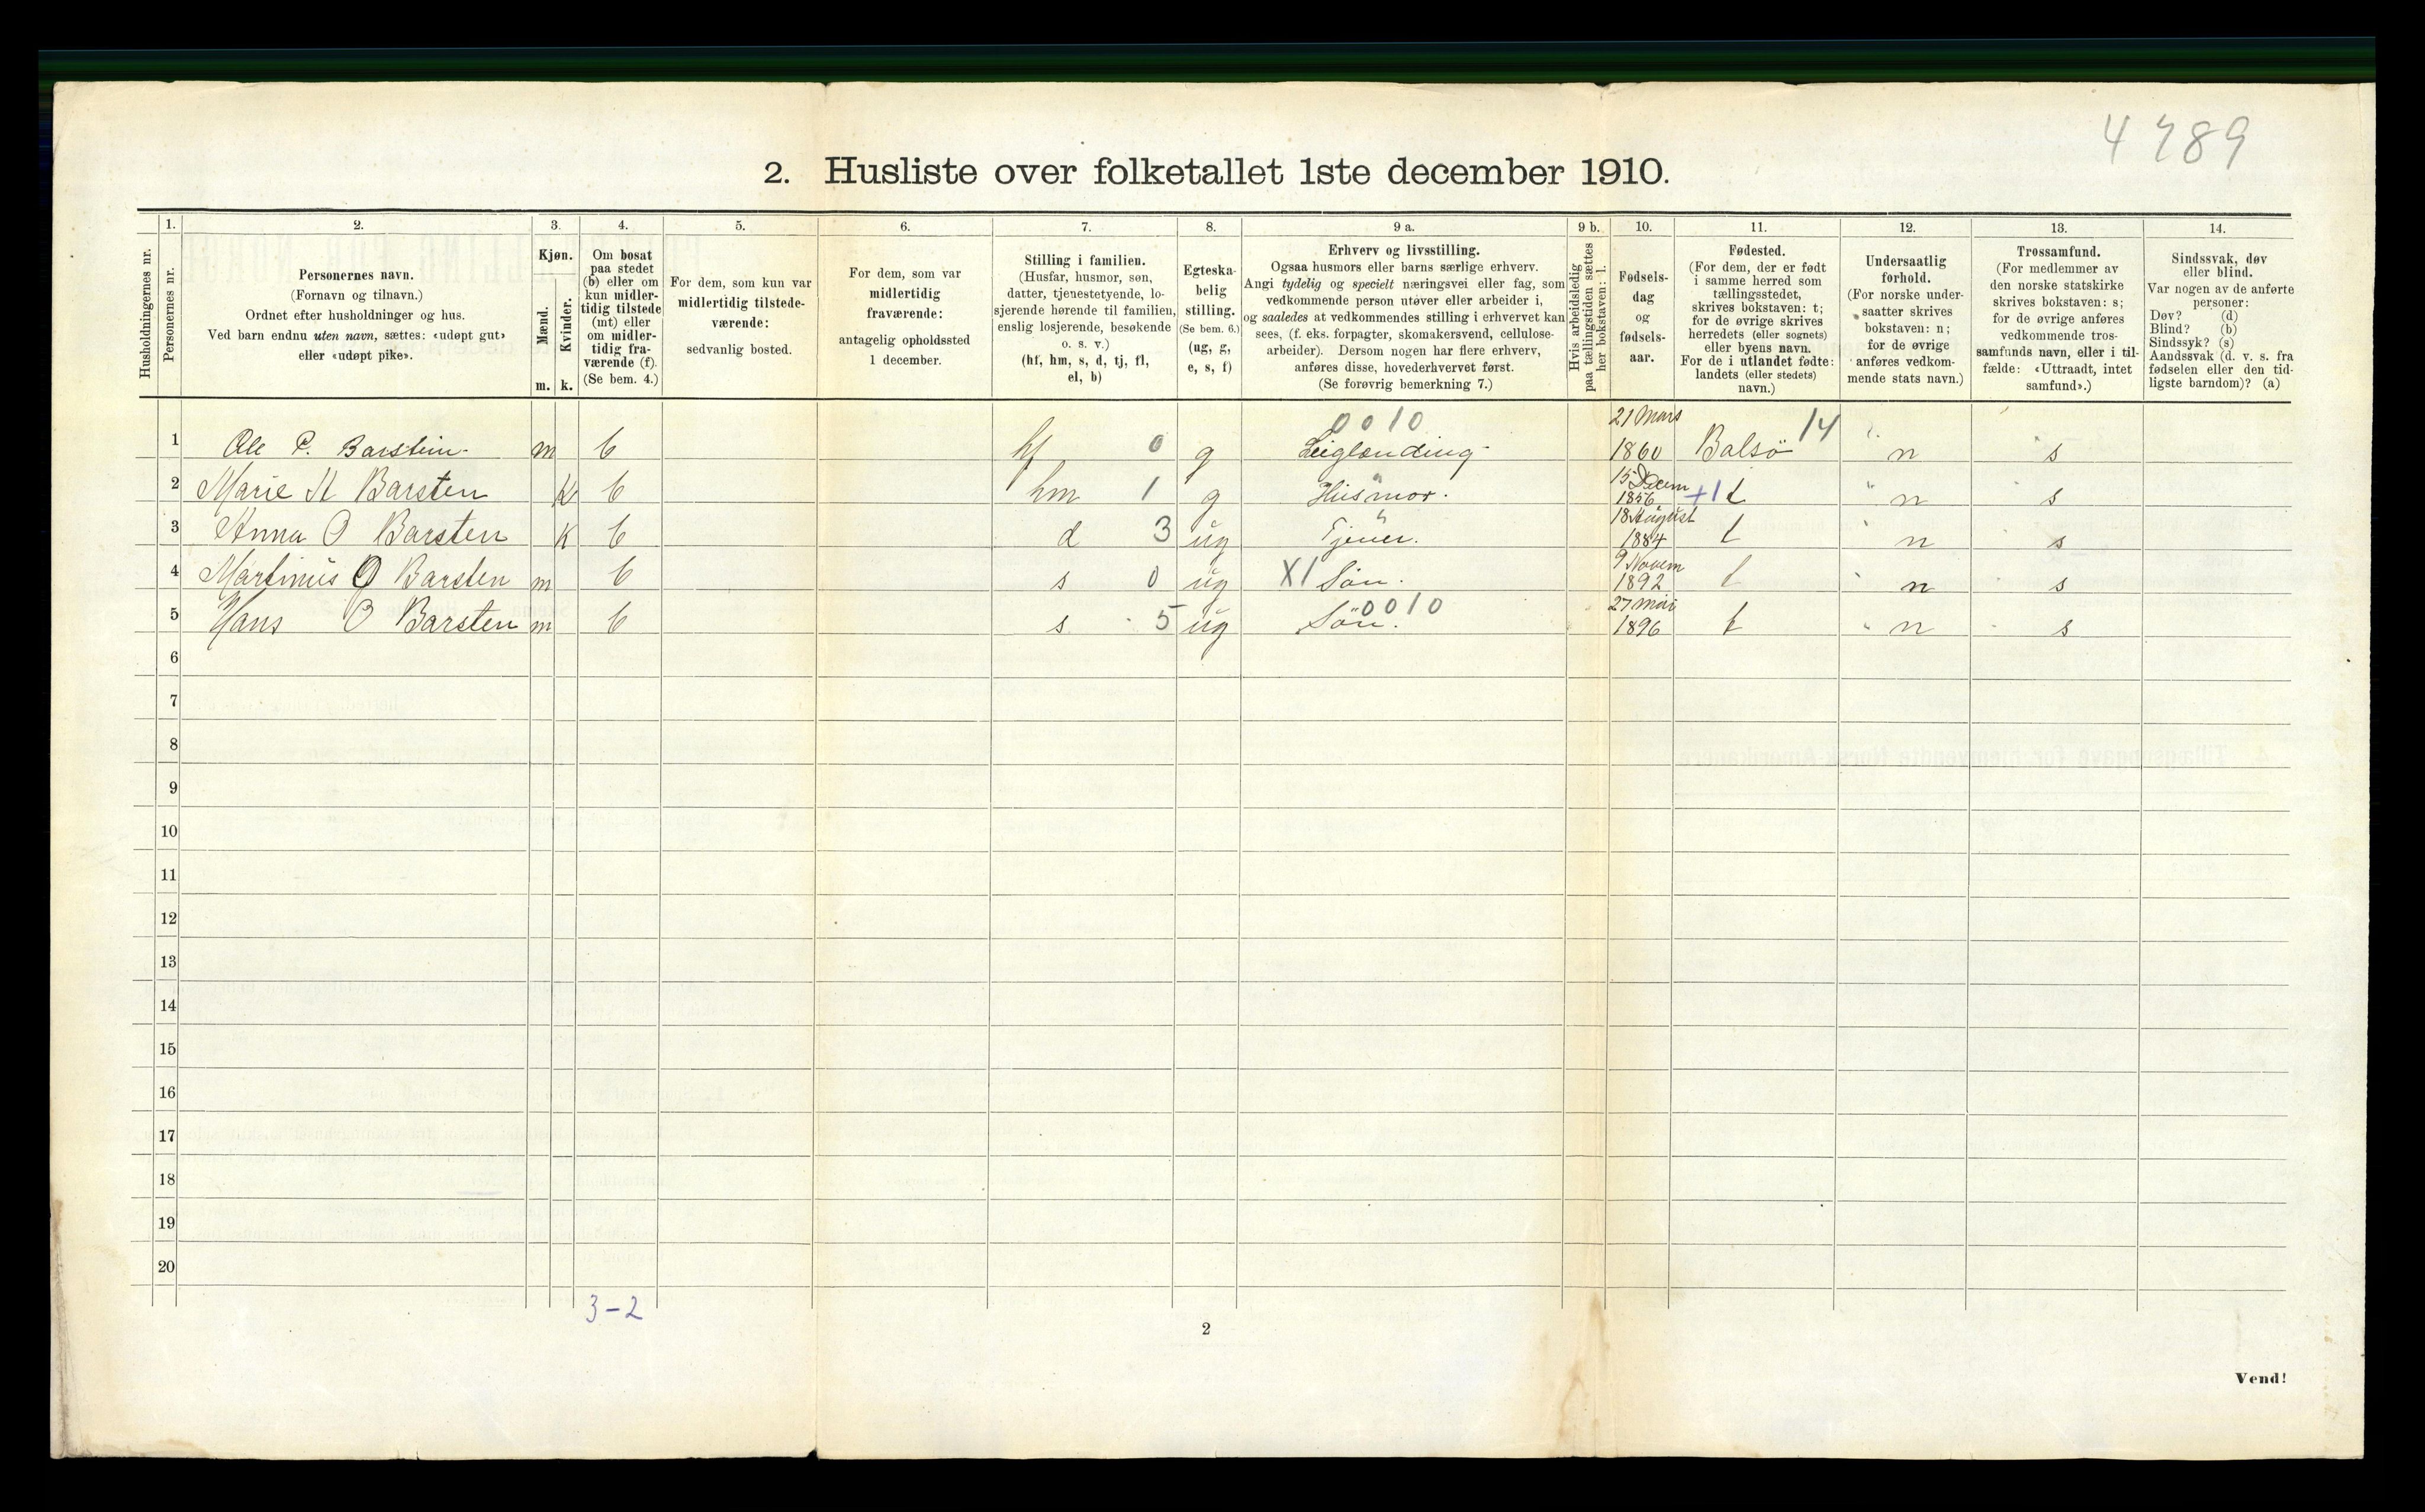 4789
2. Husliste over folketallet 1ste december 1910.
Husholdningernes nr.
1.
Personernes nr.
2.
Personernes navn.
(Fornavn og tilnavn.)
Ordnet efter husholdninger og hus.
Ved barn endnu uten navn, sættes: «udøpt gut»
eller «udøpt pike».
3.
Kjøn.
Mænd.
Kvinder.
m. k.
4.
Om bosat
paa stedet
(b) eller om
kun midler-
tidig tilstede
(mt) eller
om midler-
tidig fra-
værende (f).
(Se bem. 4.)
5.
For dem, som kun var
midlertidig tilstede-
værende:
sedvanlig bosted.
6.
For dem, som var
midlertidig
fraværende:
antagelig opholdssted
1 december.
7.
Stilling i familien.
(Husfar, husmor, søn,
datter, tjenestetyende, lo-
sjerende hørende til familien,
enslig losjerende, besøkende
o. s. v.)
(hf, hm, s, d, tj, fl,
el, b)
8.
Egteska-
belig
stilling.
(Se bem. 6.)
(ug, g,
e, s, f)
9 a.
Erhverv og livsstilling.
Ogsaa husmors eller barns særlige erhverv.
Angi tydelig og specielt næringsvei eller fag, som
vedkommende person utøver eller arbeider i,
og saaledes at vedkommendes stilling i erhvervet kan
sees, (f. eks. forpagter, skomakersvend, cellulose-
arbeider). Dersom nogen har flere erhverv,
anføres disse, hovederhvervet først.
(Se forøvrig bemerkning 7.)
9 b.
Hvis arbeidsledig
paa tællingstiden sættes
her bokstaven: l.
10.
Fødsels-
dag
og
fødsels-
aar.
11.
Fødested.
(For dem, der er født
i samme herred som
tællingsstedet,
skrives bokstaven: t;
for de øvrige skrives
herredets (eller sognets)
eller byens navn.
For de i utlandet fødte:
landets (eller stedets)
navn.)
12.
Undersaatlig
forhold.
(For norske under-
saatter skrives
bokstaven: n;
for de øvrige
anføres vedkom-
mende stats navn.)
13.
Trossamfund.
(For medlemmer av
den norske statskirke
skrives bokstaven: s;
for de øvrige anføres
vedkommende tros-
samfunds navn, eller i til-
fælde: «Uttraadt, intet
samfund».)
14.
Sindssvak, døv
eller blind.
Var nogen av de anførte
personer:
Døv? (d)
Blind? (b)
Sindssyk? (s)
Aandssvak (d. v. s. fra
fødselen eller den tid-
ligste barndom)? (a)
0010 21 Mars
1 Ole P. Barstein m b hf 0 g Leiglænding 1860 Balsö 14 n s
15 Decem
2 Marie K Barsten k b hm 1 g Husmor. 1856 +1 t n s
18 August
3 Anna O Barsten k b d 3 ug Tjener. 1884 t n s
9 Novem
4 Martinus O Barsten m b s 0 ug X1 Sön. 1892 t n s
0010 27 Mai
5 Hans O Barsten m b s 5 ug Sön. 1896 t n s
6
7
8
9
10
11
12
13
14
15
16
17
18
19
20
3-2
2
Vend!